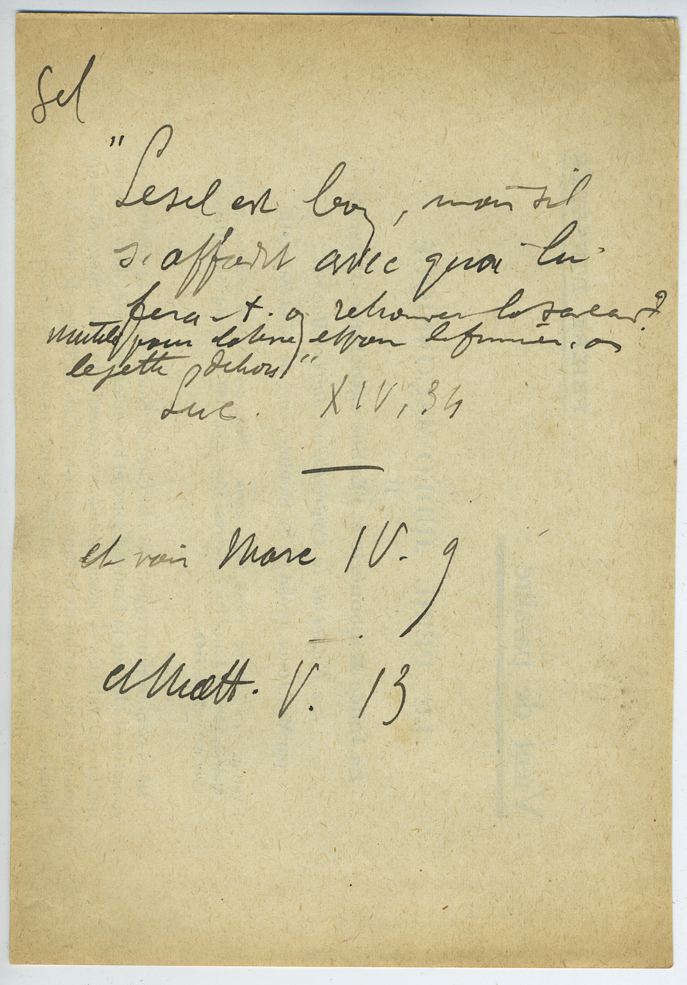 Sel
"Le sel est bon, mais s'il
s'affadit avec quoi lui
fera-t-on retrouver la saveur?
inutile pour la terre et pour le fumier, on
le jette dehors"
Luc. XIV, 34
et voir Marc IV. 9
et Matt. V. 13